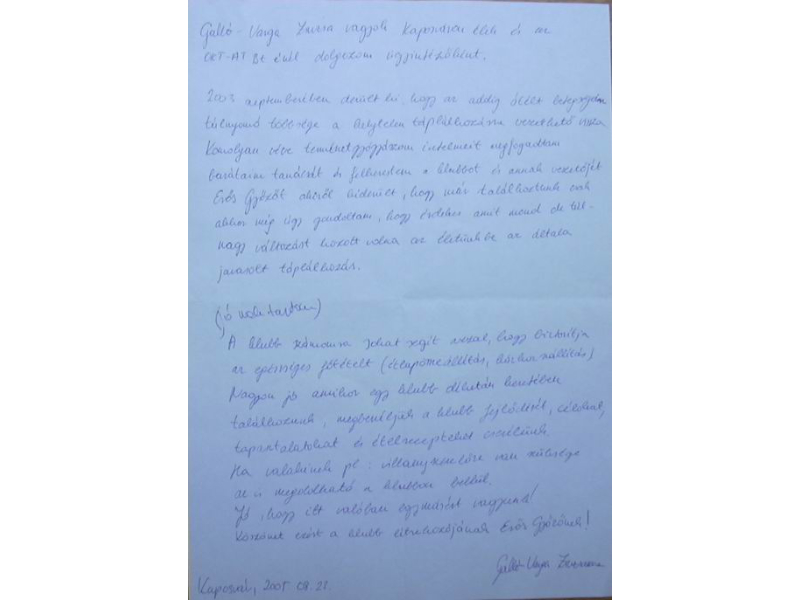 Galló-Varga Zsuzsa vagyok Kaposváron élek és az
Bt énél dolgozom ügyintézőként.
2003 szeptemberében derült ki, hogy az addig átélt betegségeim
túlnyomó többsége a helytelen táplálkozásra vezethető vissza
Komolyan véve természetgyógyászom intelmeit megfogadtam
barátaim tanácsát és felkerestem a klubbot és annak vezetőjét
Erős Győzőt akiről kiderült, hogy már találkoztunk csak
akkor még úgy gondoltam, hogy érdekes amit mond de túl-
nagy változást hozott volna az életünkbe az általa
javasolt táplálkozás.
(jó
A klubb számomra sokat segít azzal, hogy biztosítja
az egészséges főételt (étlapösszeállítás, házhozszállítás)
Nagyon jó amikor egy klubb délután keretében
találkozunk, megbeszéljük a klubb fejlődését, céljait,
tapasztalatokat és ételrecepteket cserélünk.
Ha valakinek pl: villanyszerelőre van szüksége
az is megoldható a klubbon belül.
Jó, hogy itt valóban egymásért vagyunk!
Köszönet ezért a klubb létrehozójának Erős Győzőnek!
Galló-Varga Zsuzsanna
Kaposvár, 2005